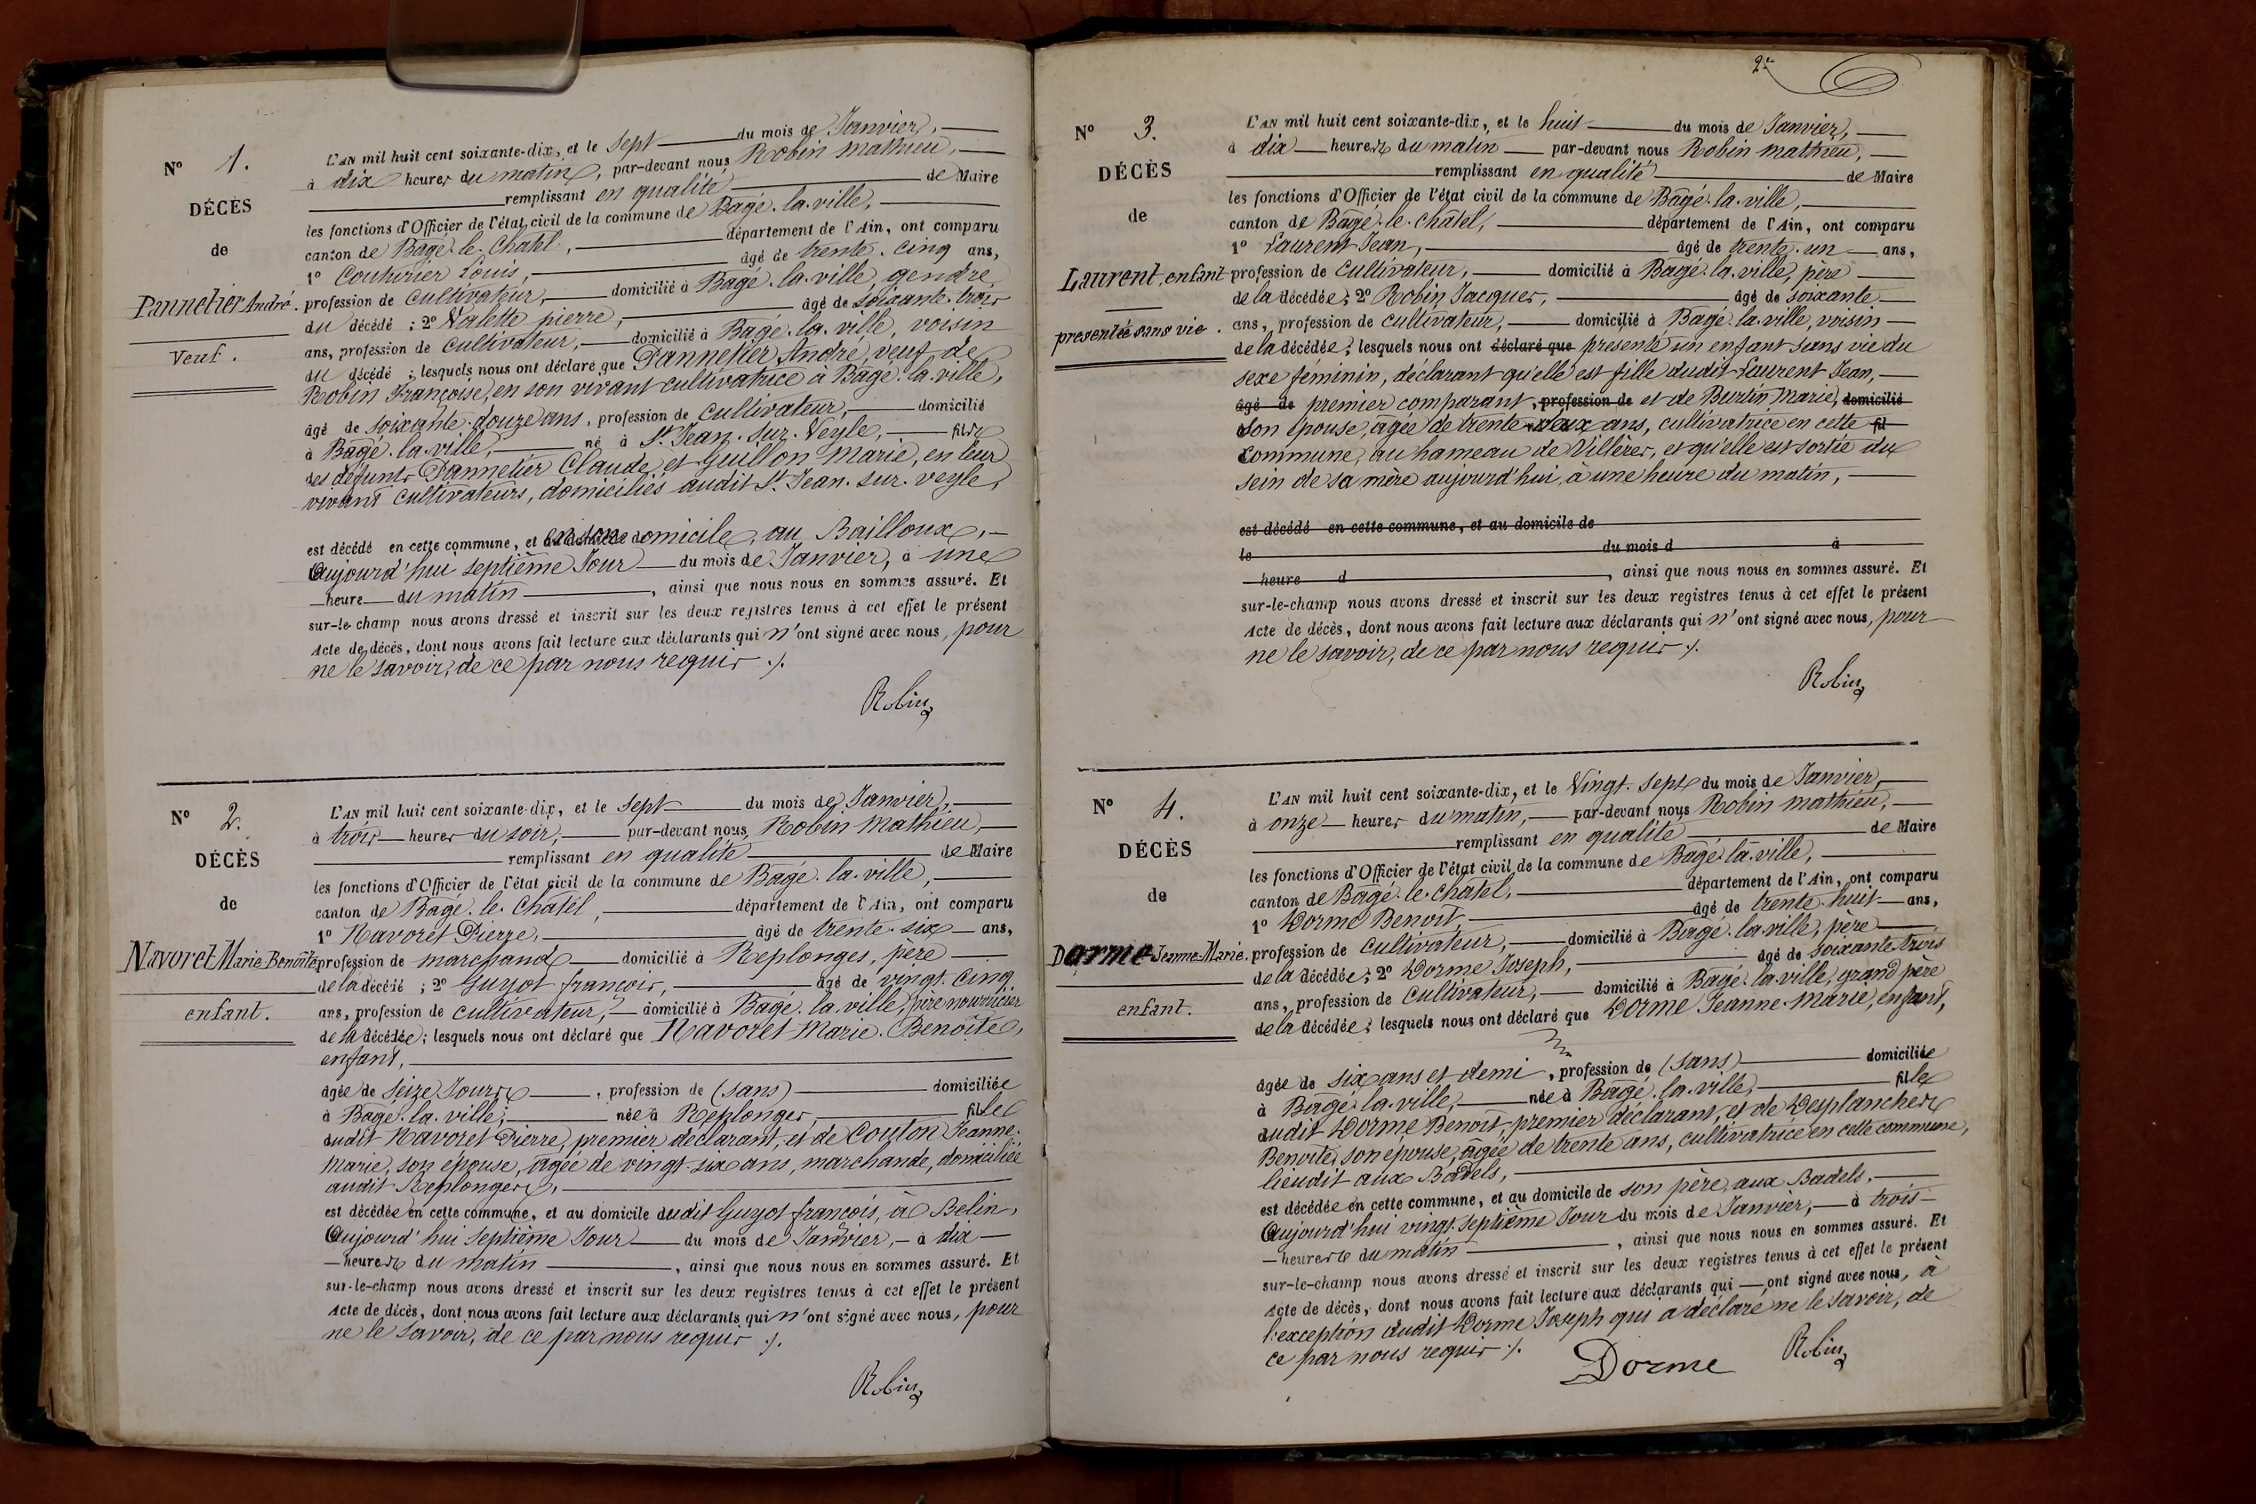 N° 1.
DÉCÈS
de
Pannetier André.
Veuf.
L'AN mil huit cent soixante-dix, et le sept du mois de Janvier,
à dix heures du matin, par-devant nous Robin Mathieu,
remplissant en qualité de Maire
les fonctions d'Officier de l'état civil de la commune de Bagé-la-ville,
canton de Bagé-le-Chatel, département de l'Ain, ont comparu
1° Couturier Louis, âgé de trente-cinq ans,
profession de cultivateur, domicilié à Bagé-la-ville, gendre
du décédé ; 2° Valette pierre, âgé de soixante-trois
ans, profession de cultivateur, domicilié à Bagé-la-ville, voisin
du décédé ; lesquels nous ont déclaré que Pannetier André, veuf de
Robin Françoise, en son vivant cultivatrice à Bagé-la-ville,
âgé de soixante-douze ans, profession de cultivateur, domicilié
à Bagé-la-ville, né à St Jean-sur-Veyle, fils de
des défunts Pannetier Claude, et Guillon Marie, en leur
vivant cultivateurs, domiciliés audit St Jean-sur-veyle,
est décédé en cette commune, et en son domicile, au Bailloux,
Aujourd'hui septième Jour du mois de Janvier, à une
heure du matin, ainsi que nous nous en sommes assuré. Et
sur-le-champ nous avons dressé et inscrit sur les deux registres tenus à cet effet le présent
Acte de décès, dont nous avons fait lecture aux déclarants qui n'ont signé avec nous, pour
ne le savoir, de ce par nous requis ./.
Robin
N° 2.
DÉCÈS
de
Navoret Marie Benoîte
enfant.
L'AN mil huit cent soixante-dix, et le sept du mois de Janvier,
à trois heures du soir, par-devant nous Robin Mathieu,
remplissant en qualité de Maire
les fonctions d'Officier de l'état civil de la commune de Bagé-la-ville,
canton de Bagé-le-Châtel, département de l'Ain, ont comparu
1° Navoret Pierre, âgé de trente-six ans,
profession de marchand domicilié à Replonges, père
de la décédé ; 2° Guyot françois, âgé de vingt-cinq
ans, profession de cultivateur, domicilié à Bagé-la-ville, père nourricier
de la décédée ; lesquels nous ont déclaré que Navoret Marie-Benoîte,
enfant,
âgée de seize Jours, profession de (sans) domiciliée
à Bagé-la-ville, née à Replonges, fille
dudit Navoret Pierre, premier déclarant, et de Couton Jeanne-
Marie, son épouse, âgée de vingt-six ans, marchande, domiciliée
audit Replonges,
est décédée en cette commune, et au domicile dudit Guyot françois, à Belin,
Aujourd'hui septième Jour du mois de Janvier, à dix
heures du matin, ainsi que nous nous en sommes assuré. Et
sur-le-champ nous avons dressé et inscrit sur les deux registres tenus à cet effet le présent
Acte de décès, dont nous avons fait lecture aux déclarants qui n'ont signé avec nous, pour
ne le savoir, de ce par nous requis ./.
Robin
2e
N° 3.
DÉCÈS
de
Laurent, enfant
presentée sans vie.
L'AN mil huit cent soixante-dix, et le huit du mois de Janvier,
à dix heures du matin par-devant nous Robin Mathieu,
remplissant en qualité de Maire
les fonctions d'Officier de l'état civil de la commune de Bagé-la-ville,
canton de Bagé-le-châtel, département de l'Ain, ont comparu
1° Laurent Jean, âgé de trente-un ans,
profession de cultivateur, domicilié à Bagé-la-ville, père
de la décédée ; 2° Robin Jacques, âgé de soixante
ans, profession de cultivateur, domicilié à Bagé-la-ville, voisin
de la décédée ; lesquels nous ont déclaré que présenté un enfant sans vie du
sexe féminin, déclarant qu'elle est fille dudit Laurent Jean,
âgé de premier comparant, profession de et de Burtin Marie, domicilié
son épouse, âgée de trente-deux ans, cultivatrice en cette fil
commune, au hameau de Villères, et qu'elle est sortie du
sein de sa mère aujourd'hui, à une heure du matin,
est décédé en cette commune, et au domicile de
le du mois d à
heure d, ainsi que nous nous en sommes assuré. Et
sur-le-champ nous avons dressé et inscrit sur les deux registres tenus à cet effet le présent
Acte de décès, dont nous avons fait lecture aux déclarants qui n'ont signé avec nous, pour
ne le savoir, de ce par nous requis ./.
Robin
N° 4.
DÉCÈS
de
Dorme Jeanne-Marie.
enfant.
L'AN mil huit cent soixante-dix, et le Vingt-sept du mois de Janvier,
à onze heures du matin, par-devant nous Robin Mathieu,
remplissant en qualité de Maire
les fonctions d'Officier de l'état civil de la commune de Bagé-la-ville,
canton de Bagé-le-chatel, département de l'Ain, ont comparu
1° Dorme Benoît, âgé de trente-huit ans,
profession de cultivateur, domicilié à Bagé-la-ville, père
de la décédée ; 2° Dorme Joseph, âgé de soixante-trois
ans, profession de cultivateur, domicilié à Bagé-la-ville, grand père
de la décédée ; lesquels nous ont déclaré que Dorme Jeanne-Marie, enfant,
âgée de six ans et demi, profession de (sans) domiciliée
à Bagé-la-ville, née à Bagé-la-ville, fille
dudit Dorme Benoît, premier déclarant, et de Desplanches
Benoîte, son épouse, âgée de trente ans, cultivatrice en cette commune,
lieudit aux Badels,
est décédée en cette commune, et au domicile de son père, aux Badels,
Aujourd'hui vingt-septième Jour du mois de Janvier, à trois
heures du matin, ainsi que nous nous en sommes assuré. Et
sur-le-champ nous avons dressé et inscrit sur les deux registres tenus à cet effet le présent
Acte de décès, dont nous avons fait lecture aux déclarants qui ont signé avec nous, à
l'exception dudit Dorme Joseph qui a déclaré ne le savoir, de
ce par nous requis ./.
Dorme
Robin